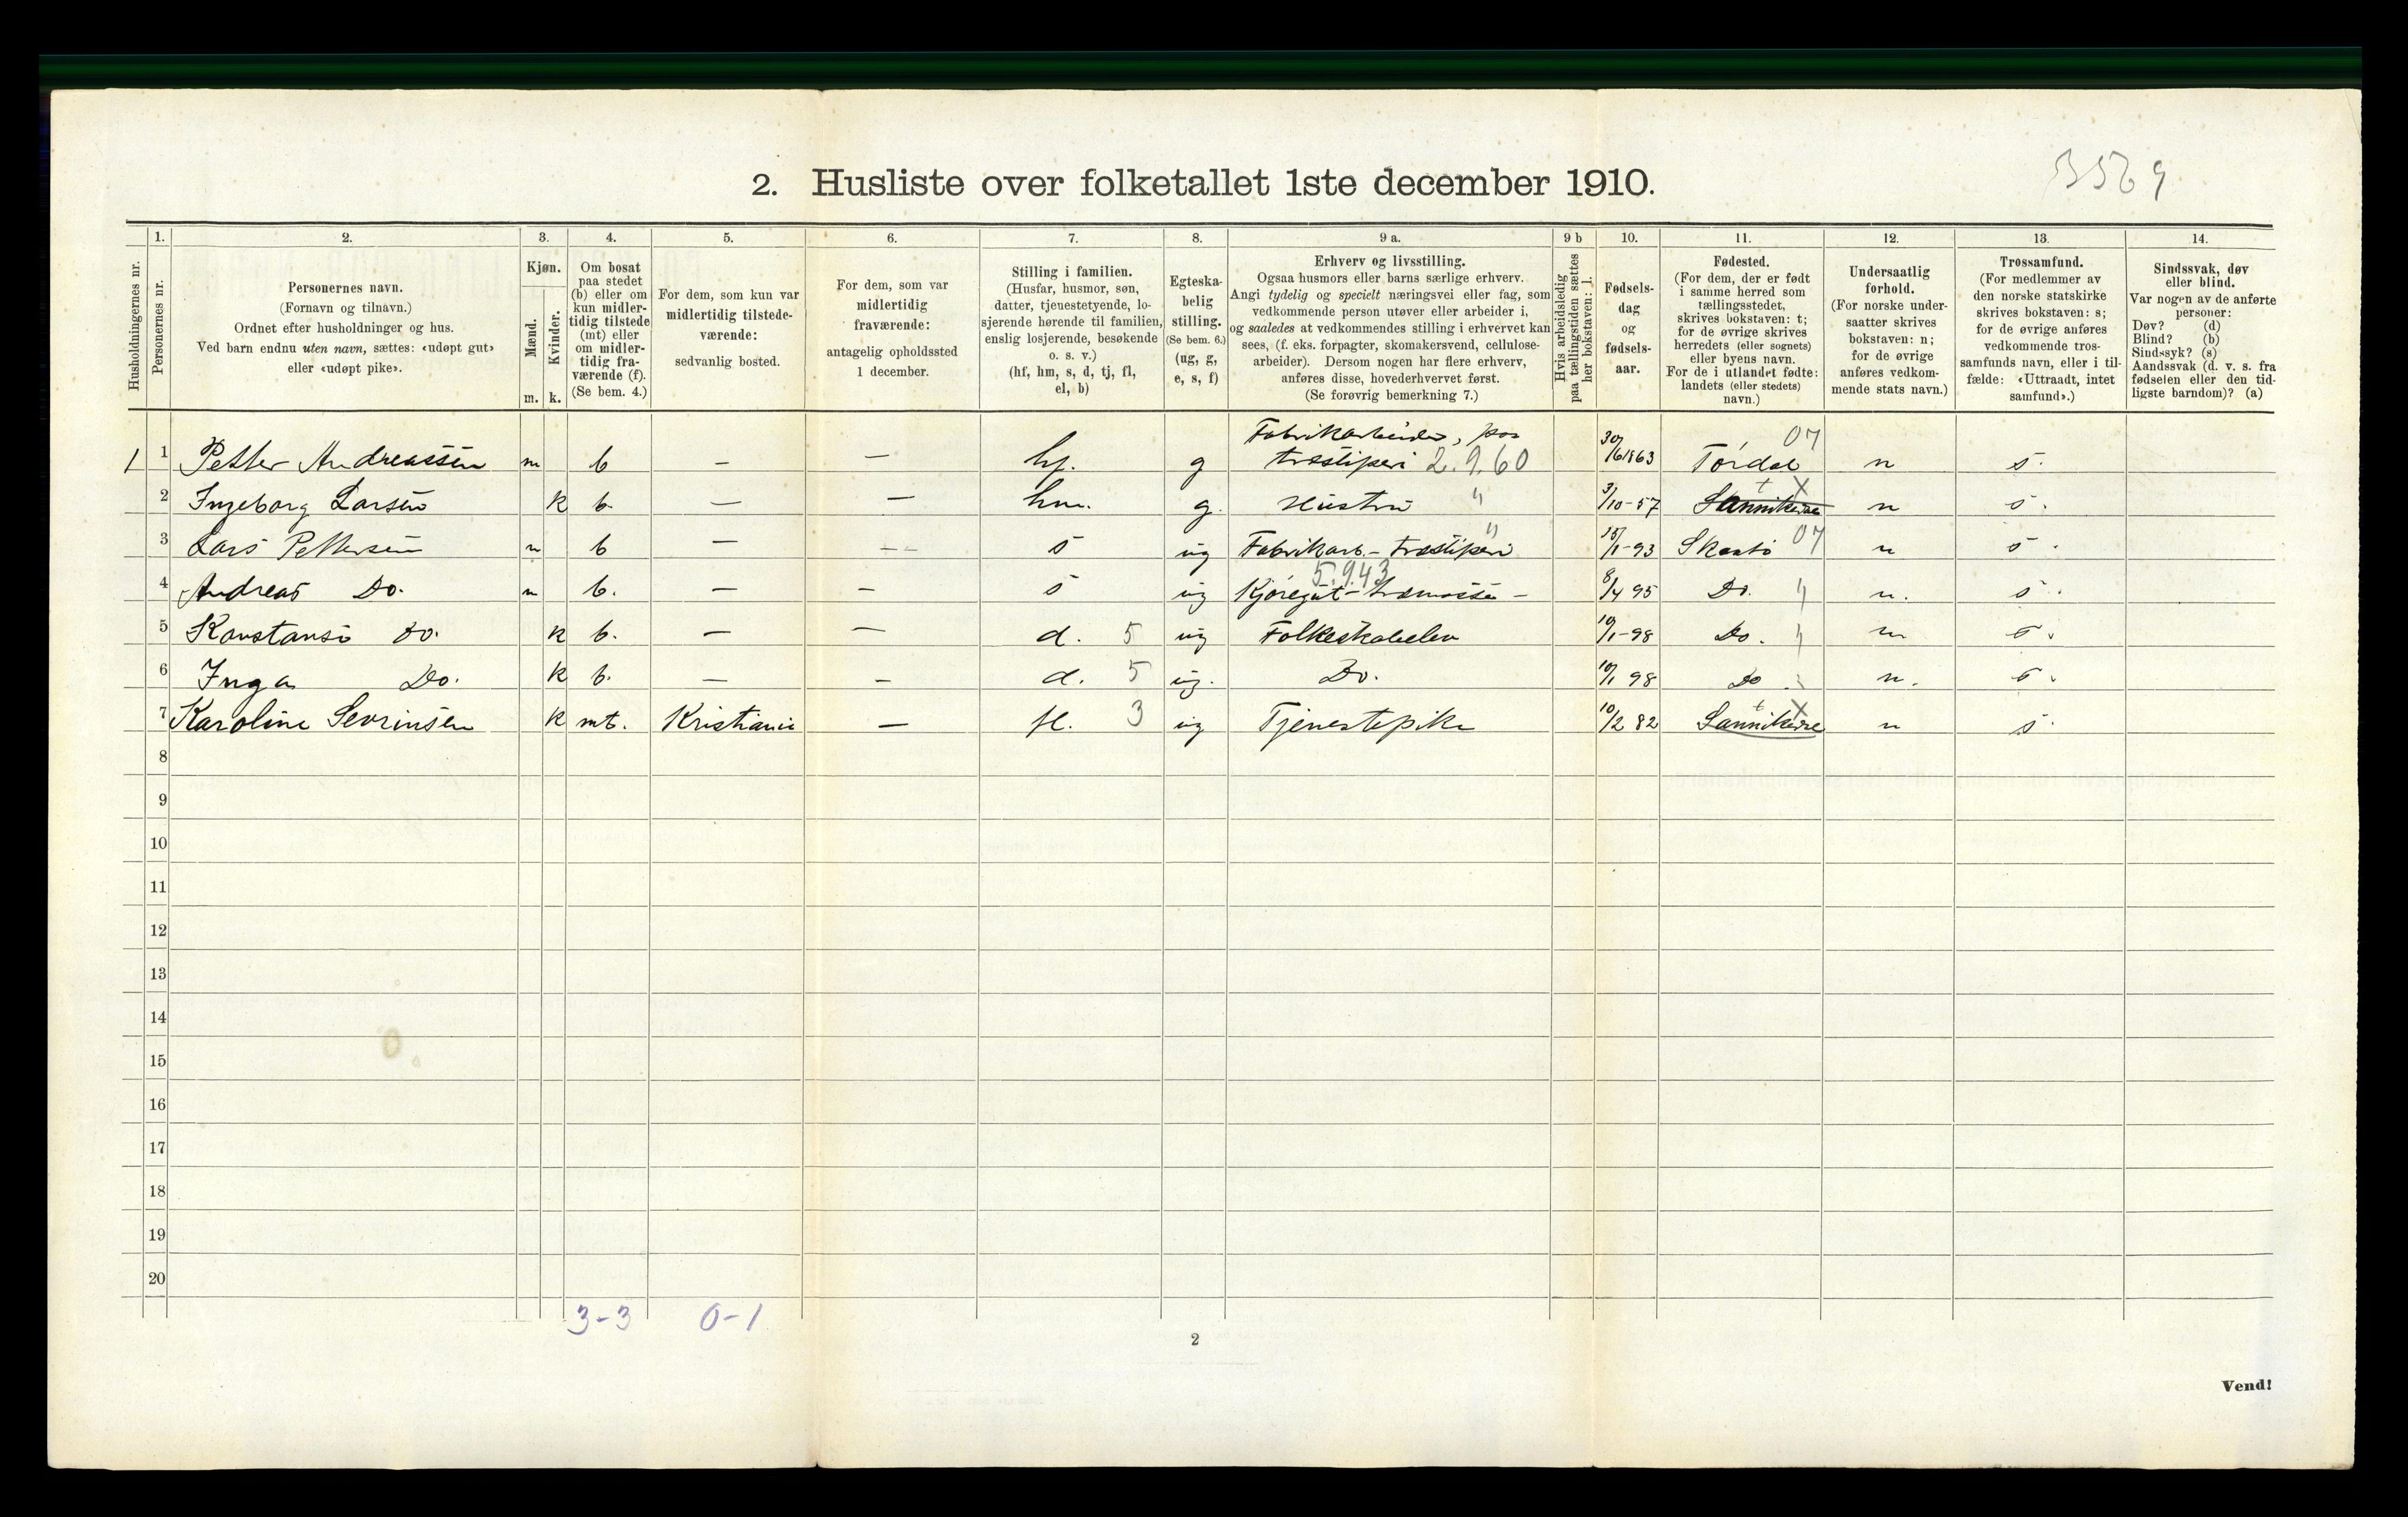 2. Husliste over folketallet 1ste december 1910.
3569
1. 2. 3. 4. 5. 6. 7. 8. 9 a. 9 b 10. 11. 12. 13. 14.
Husholdningernes nr.
Personernes nr.
Personernes navn.
(Fornavn og tilnavn.)
Ordnet efter husholdninger og hus.
Ved barn endnu uten navn, sættes: «udøpt gut»
eller «udøpt pike».
Kjøn.
Mænd.
Kvinder.
m. k.
Om bosat
paa stedet
(b) eller om
kun midler-
tidig tilstede
(mt) eller
om midler-
tidig fra-
værende (f).
(Se bem. 4.)
For dem, som kun var
midlertidig tilstede-
værende:
sedvanlig bosted.
For dem, som var
midlertidig
fraværende:
antagelig opholdssted
1 december.
Stilling i familien.
(Husfar, husmor, søn,
datter, tjenestetyende, lo-
sjerende hørende til familien,
enslig losjerende, besøkende
o. s. v.)
(hf, hm, s, d, tj, fl,
el, b)
Egteska-
belig
stilling.
(Se bem. 6.)
(ug, g,
e, s, f)
Erhverv og livsstilling.
Ogsaa husmors eller barns særlige erhverv.
Angi tydelig og specielt næringsvei eller fag, som
vedkommende person utøver eller arbeider i,
og saaledes at vedkommendes stilling i erhvervet kan
sees, (f. eks. forpagter, skomakersvend, cellulose-
arbeider). Dersom nogen har flere erhverv,
anføres disse, hovederhvervet først.
(Se forøvrig bemerkning 7.)
Hvis arbeidsledig
paa tællingstiden sættes
her bokstaven: l.
Fødsels-
dag
og
fødsels-
aar.
Fødested.
(For dem, der er født
i samme herred som
tællingsstedet,
skrives bokstaven: t;
for de øvrige skrives
herredets (eller sognets)
eller byens navn.
For de i utlandet fødte:
landets (eller stedets)
navn.)
Undersaatlig
forhold.
(For norske under-
saatter skrives
bokstaven: n;
for de øvrige
anføres vedkom-
mende stats navn.)
Trossamfund.
(For medlemmer av
den norske statskirke
skrives bokstaven: s;
for de øvrige anføres
vedkommende tros-
samfunds navn, eller i til-
fælde: «Uttraadt, intet
samfund».)
Sindssvak, døv
eller blind.
Var nogen av de anførte
personer:
Døv? (d)
Blind? (b)
Sindssyk? (s)
Aandssvak (d. v. s. fra
fødselen eller den tid-
ligste barndom)? (a)
Fabrikarbeider, paa 07
1 1 Petter Andreassen m b — — hf. g træsliperi 2.9.60 30/6 1863 Tørdal n s.
2 Ingeborg Larsen k b. — — hm. g. Hustru " 3/10-57 Sannikedal t X n s.
3 Lars Pettersen m b — — s ug Fabrikarb. - træsliperi " 15/1-93 Skaatø 07 n s.
5.9.43
4 Andreas Do. m b. — — s ug Kjøregut - træmasse - 8/4 95 Do. " n. s.
5 Konstanse Do. k b. — — d. 5 ug Folkeskoleelev 10/1-98 Do. " n s.
6 Inga Do. k b. — — d. 5 ug. Do. 10/1 98 Do " n. s.
7 Karoline Sevrinsen k mt. Kristiania — fl. 3 ug Tjenestepike 10/2 82 Sannikedal t X n s.
8
9
10
11
12
13
14
15
16
17
18
19
20
3-3 0-1
2
Vend!